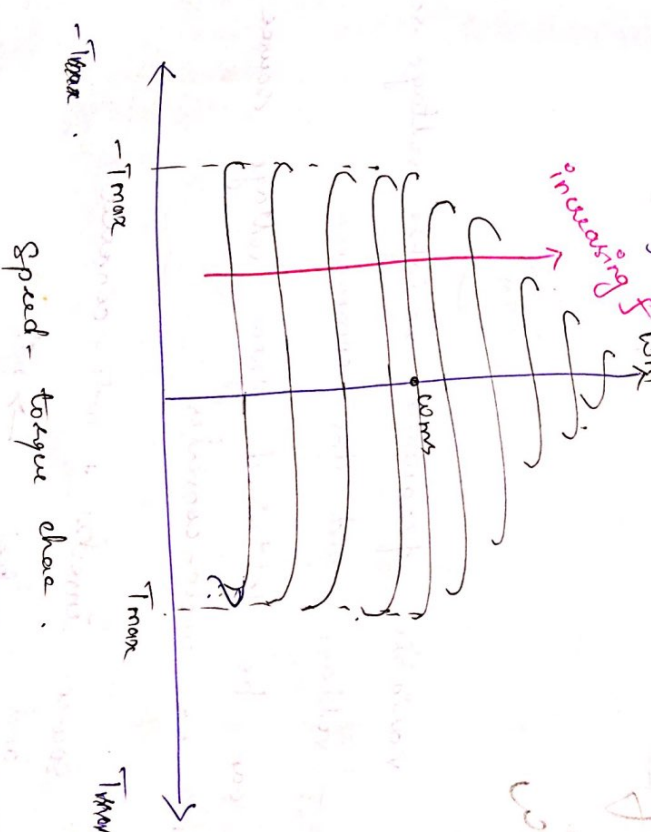 increasing f
ωms
-Tmax.
-Tmax
Tmax
Tmax
Speed- torque chac.